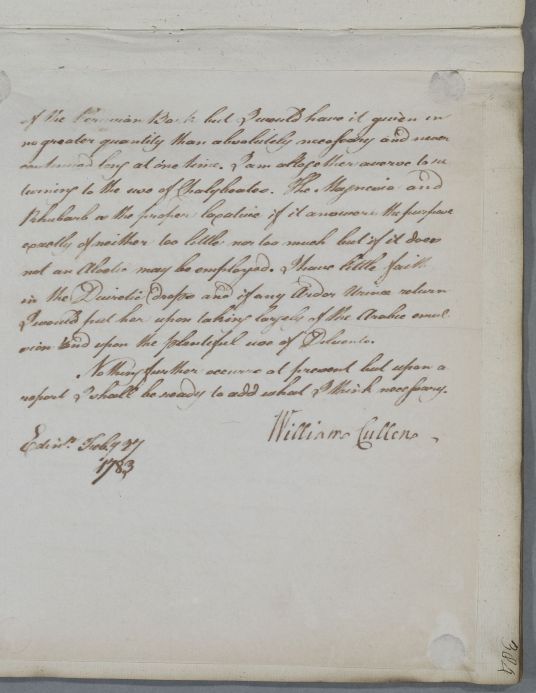 of the Peruvian Bark but I would have it given in
no greater quantity than absolutely necessary and never
continued long at one time. I am altogether averse to re
turning to the use of Chalybeates. The Magnesia and
Rhubarb is the proper laxative if it answers the purpose
exactly of neither too little nor too much but if it does
not an Aloetic may be employed. I have little faith
in the Diuretic Drops and if any Ardor Urinae return
I would put her upon taking largely of the Arabic emul
sion and upon the plentiful use of Diluents.
Nothing further occurrs at present but upon a
report I shall be ready to add what I think necessary.
William Cullen
Edinr. Feby 27
1783
384